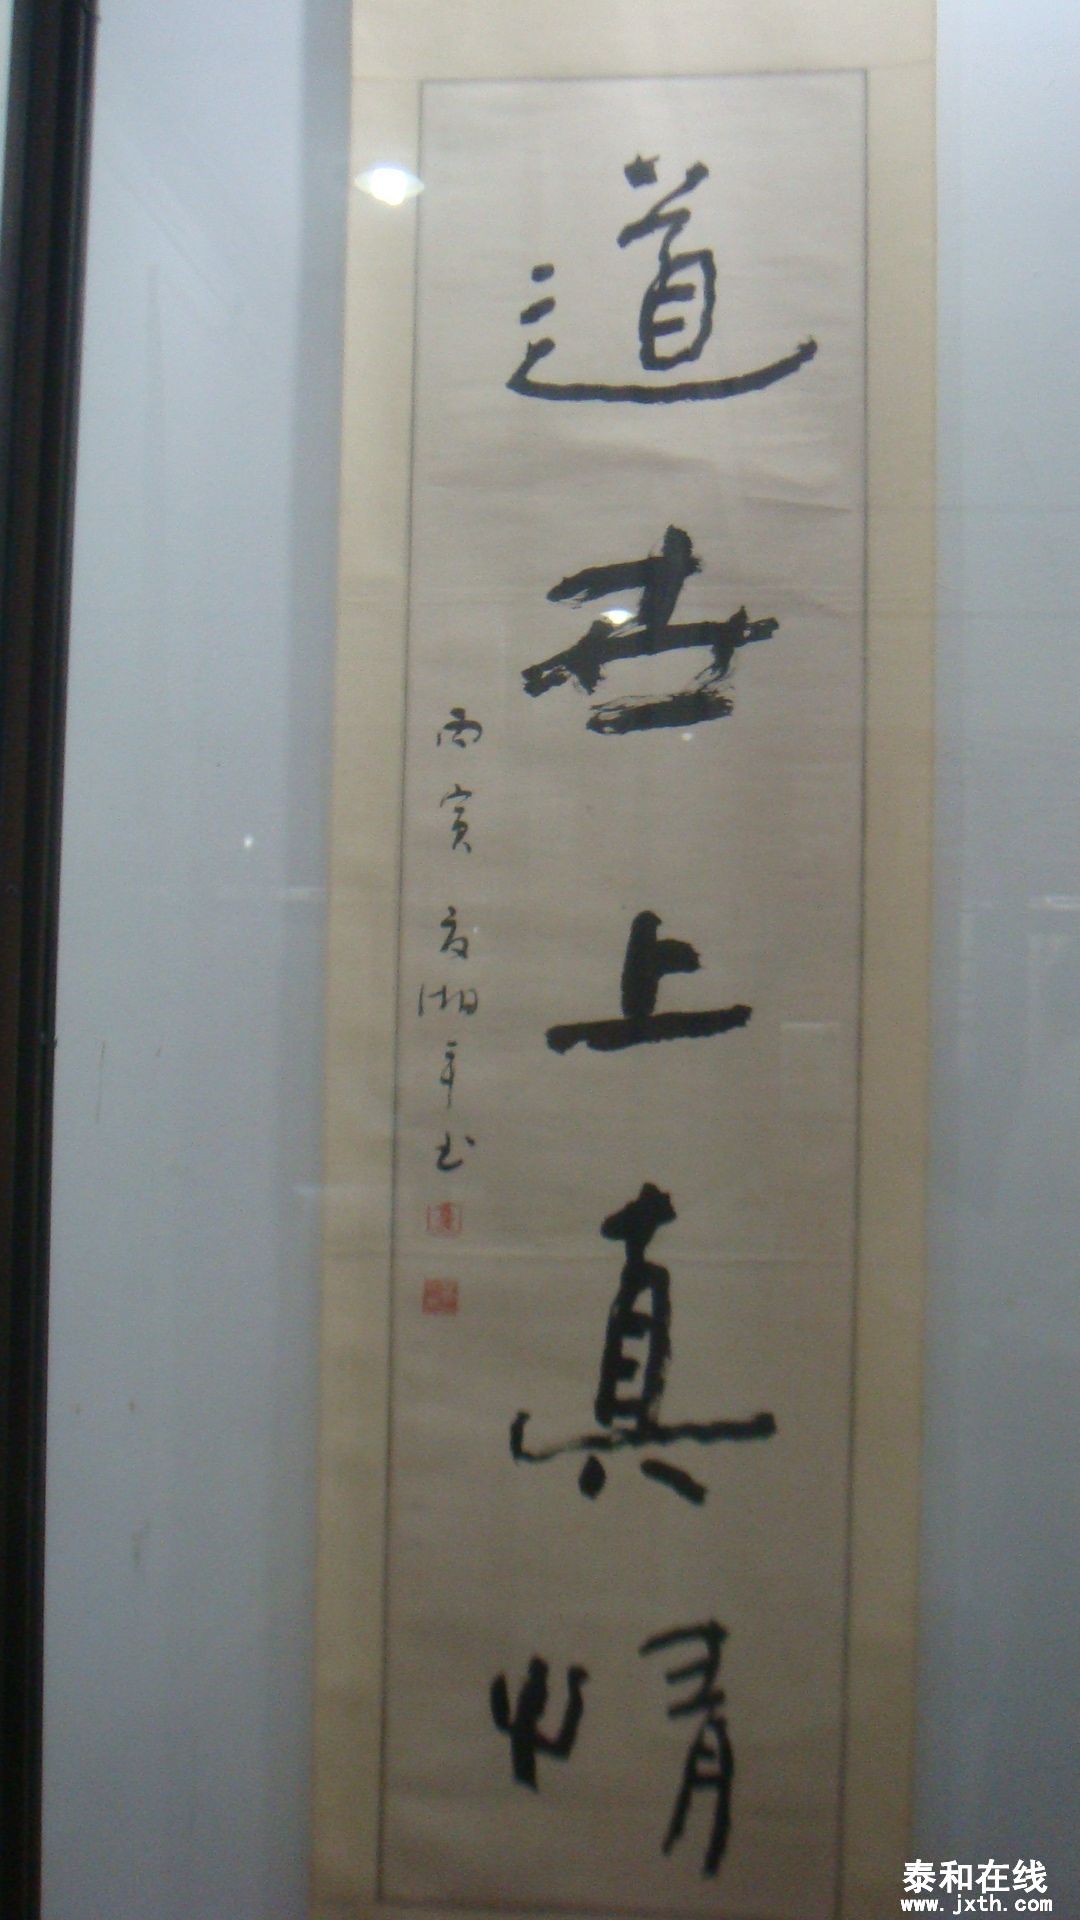 道世上真情
丙寅夏湘平书
泰和在线
www.jxth.com